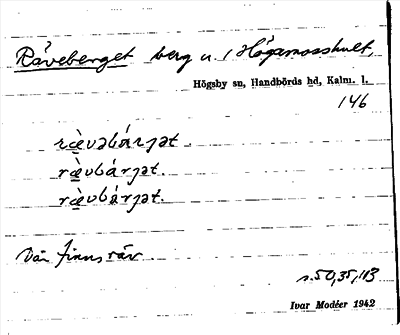 Räveberget berg u. Högamosshult,
Högsby sn, Handbörds hd, Kalm. l.
146
rævəbárjət
rævbárjət.
rævbárjət.
Där finns räv.
s. 50, 35, 113
Ivar Modéer 1942